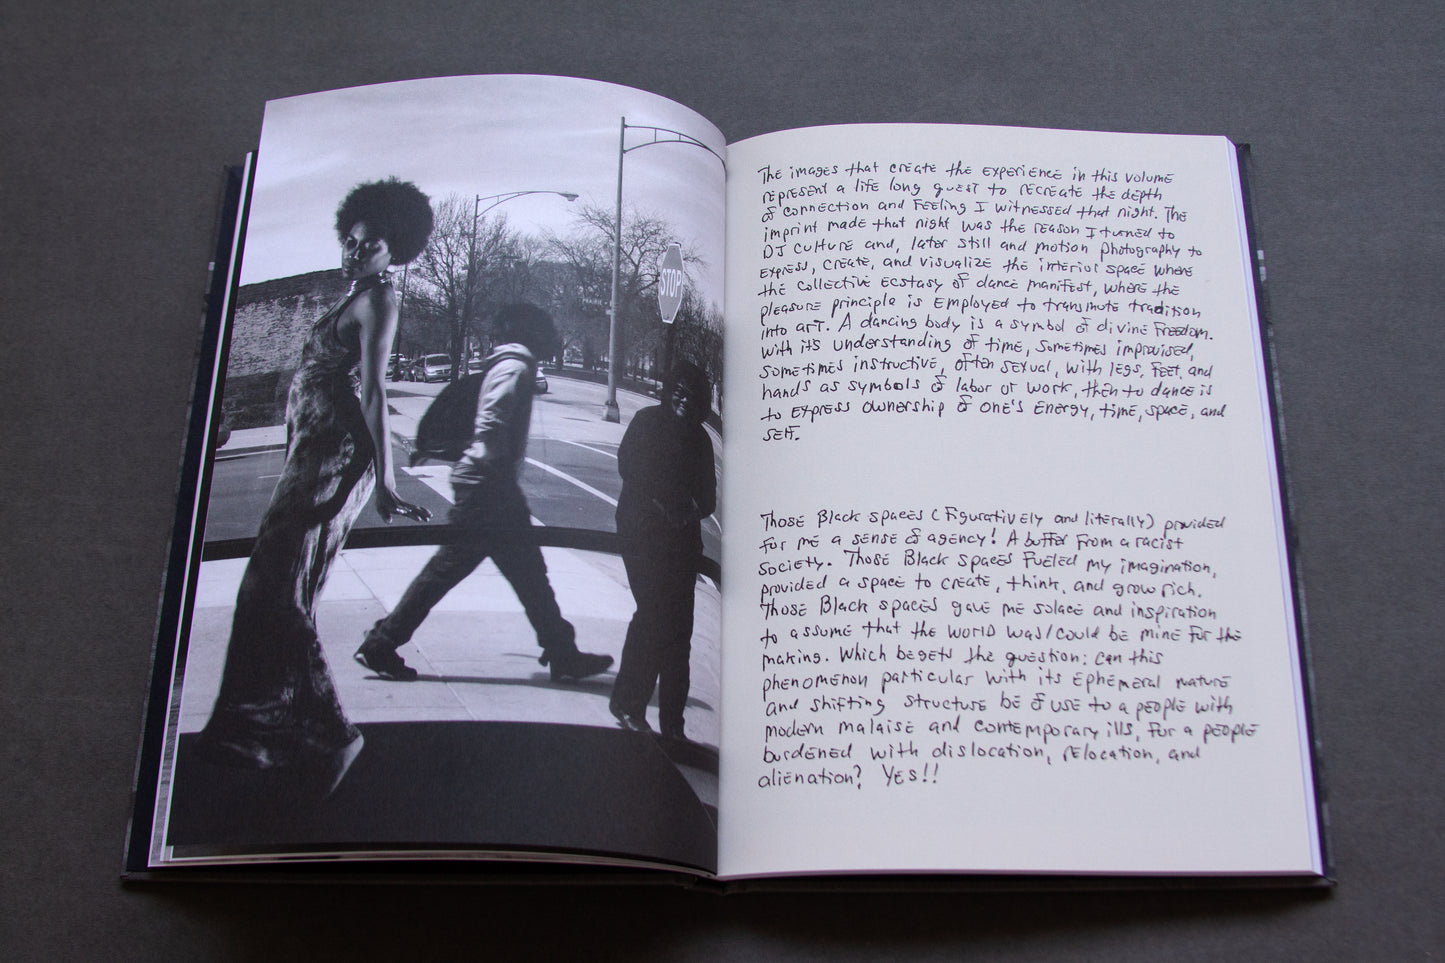 STOP
The images that create the experience in this volume
represent a life long quest to recreate the depth
of connection and feeling I witnessed that night. The
imprint made that night was the reason I turned to
DJ culture and, later still and motion photography to
express, create, and visualize the interior space where
the collective ecstasy of dance manifest, where the
pleasure principle is employed to transmute tradition
into art. A dancing body is a symbol of divine freedom.
With its understanding of time, sometimes improvised,
sometimes instructive, often sexual, with legs, feet, and
hands as symbols of labor or work, then to dance is
to express ownership of one's energy, time, space, and
self.
Those Black spaces (figuratively and literally) provided
for me a sense of agency! A buffer from a racist
society. Those Black spaces fueled my imagination,
provided a space to create, think, and grow rich.
Those Black spaces gave me solace and inspiration
to assume that the world was/could be mine for the
making. Which begets the question: can this
phenomenon particular with its ephemeral nature
and shifting structure be of use to a people with
modern malaise and contemporary ills, for a people
burdened with dislocation, relocation, and
alienation? Yes!!